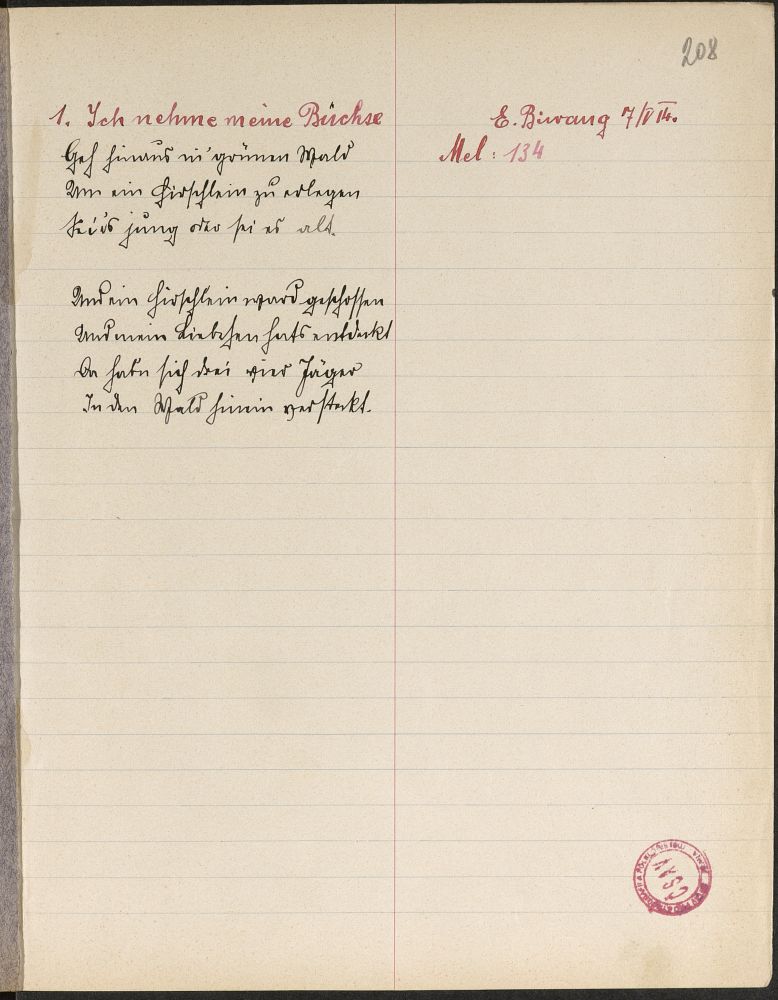 208
1. Ich nehme meine Büchse
E. Biwang 7/V 14.
Geh hinaus in' grünen Wald
Mel: 134
Um ein Hirschlein zu erlegen
Sei's jung oder sei es alt.
Und ein Hirschlein ward geschossen
Und mein Liebchen hats entdeckt
Da habn sich drei vier Jäger
In den Wald hinein versteckt.
ČSAV